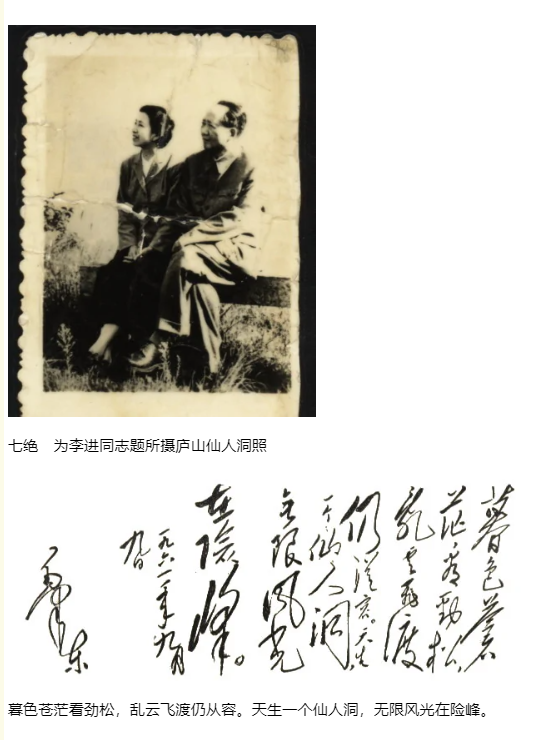 七绝　为李进同志题所摄庐山仙人洞照
暮色苍
茫看劲松，
乱云飞渡
仍从容。天生
一个仙人洞，
无限风光
在险峰。
一九六一年九月
九日
毛泽东
暮色苍茫看劲松，乱云飞渡仍从容。天生一个仙人洞，无限风光在险峰。